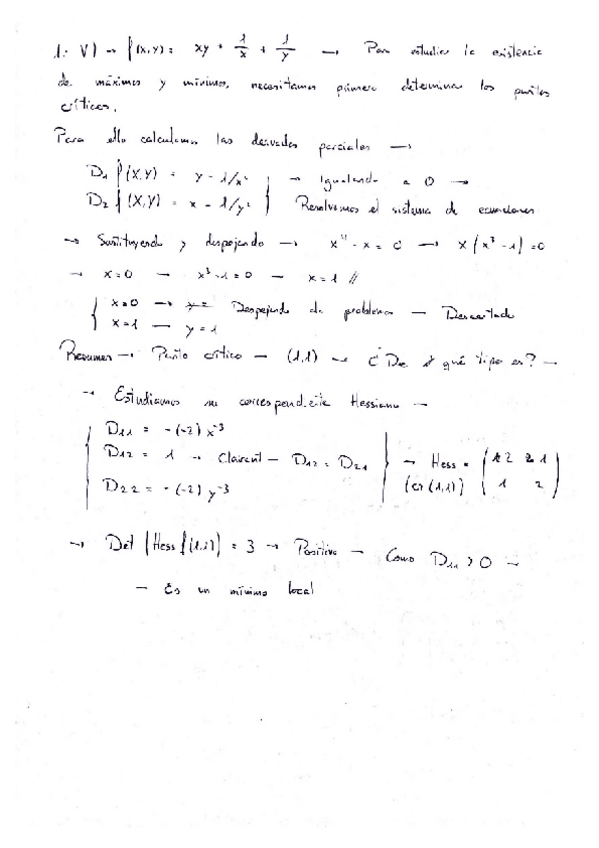 1. V) → f(x,y) = xy + 1/x + 1/y → Para estudiar la existencia
de máximos y mínimos, necesitamos primero determinar los puntos
críticos.
Para ello calculamos las derivadas parciales →
D₁ f(x,y) = y - 1/x² } → Igualando a 0 →
D₂ f(x,y) = x - 1/y² } Resolvemos el sistema de ecuaciones
→ Sustituyendo y despejando → x⁴ - x = 0 → x(x³-1) = 0
→ x=0 → x³-1=0 → x=1 //
{ x=0 → Despejando da problema → Descartado
{ x=1 → y=1
Resumen → Punto crítico → (1,1) → ¿De qué tipo es? →
→ Estudiamos su correspondiente Hessiano →
D₁₁ = -(-2) x⁻³
D₁₂ = 1 → Clairaut → D₁₂ = D₂₁ } → Hess = ( 2 1
D₂₂ = -(-2) y⁻³ (en (1,1)) 1 2 )
→ Det (Hess f(1,1)) = 3 → Positivo → Como D₁₁ > 0 →
→ Es un mínimo local